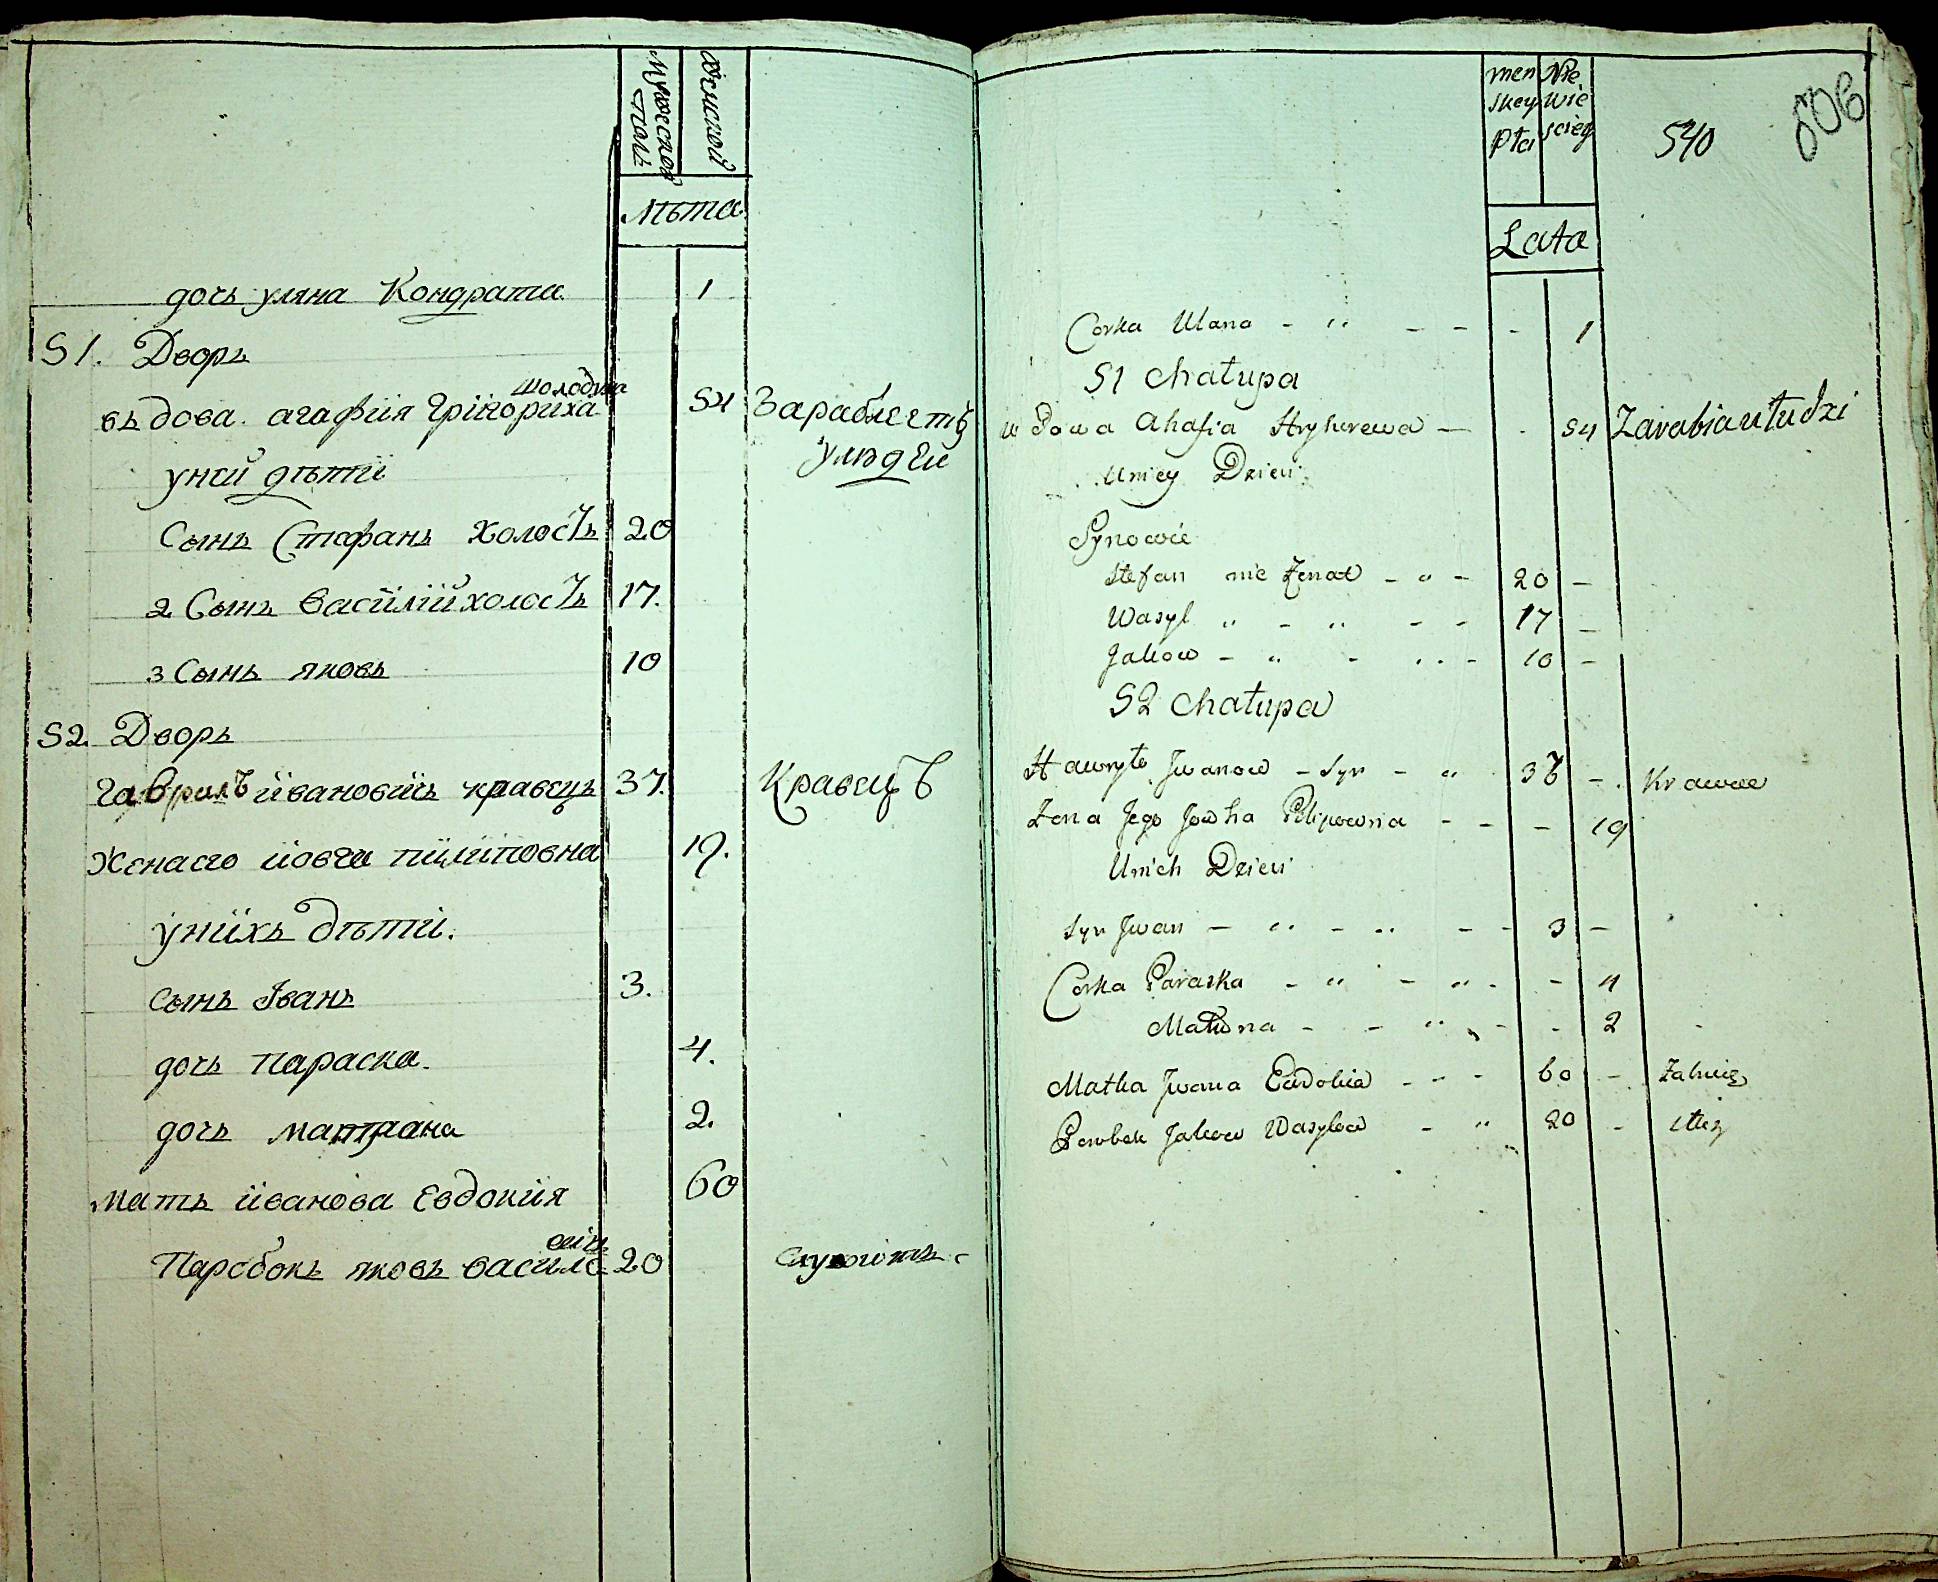 мужеской полъ
женской
лѣта
дочь уляна Кондрата 1
51. Дворъ
шолодька
вьдова агафия Грiгориха 54 Зарабляетъ
унеи дѣти улюдеи
Сынъ Стефанъ холостъ 20
2 Сынъ Василий холостъ 17.
3 Сынъ яковъ 10
52. Дворъ
Гаврилъ ивановичъ кравецъ 37. Кравецъ
Жена его иовга пилиповна 19.
унихъ дѣти.
сынъ Iванъ 3.
дочь параска. 4.
дочь матрона 2.
мать иванова Евдокия 60
Паробокъ яковъ василевичъ 20 служитъ
men skey Płci
Nie wie sciey
540
Lata
Corka Ulana - " - - - 1
51 Chałupa
wdowa Ahafia Hryhorewa - . 54 Zarabia u łudzi
Uniey Dzieci
Synowie
Stefan nie Żenat - " - 20 -
Wasyl " - " - - 17 -
Jakow - " - " - 10 -
52 Chałupa
Hawryło Jwanow - Syn - " 37 - Krawiec
Żona Jego Jowha Pilipowna - - - 19
Unich Dzieci
Syn Jwan - " - " - - 3 -
Corka Paraska - " - " - - 4
Matrona - - " - - 2
Matka Jwana Eudokia - - - 60 -
Parobek Jakow Wasylow - " 20 -